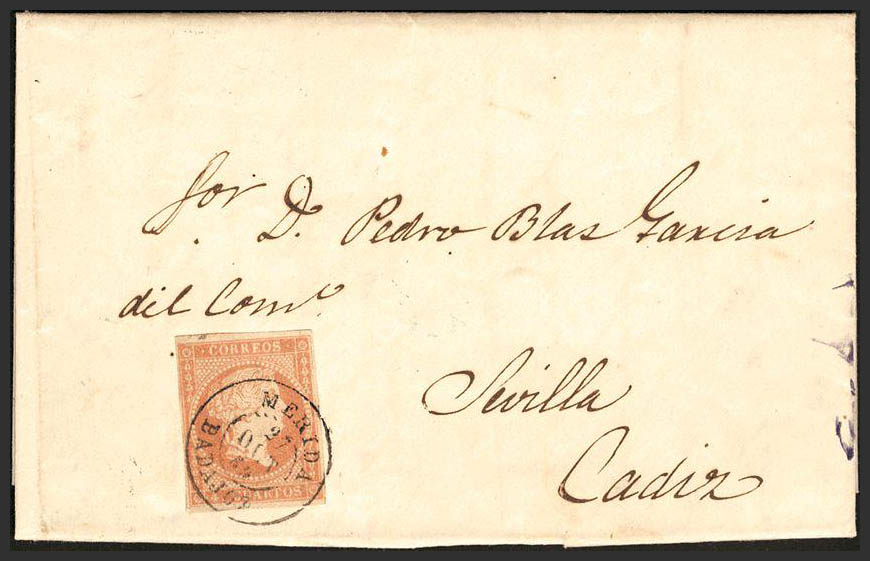 Sor
D. Pedro Blas Garcia
del Comº.
CORREOS
Sevilla
MERIDA
27
OCT
BADAJOZ
CUARTOS
Cadiz